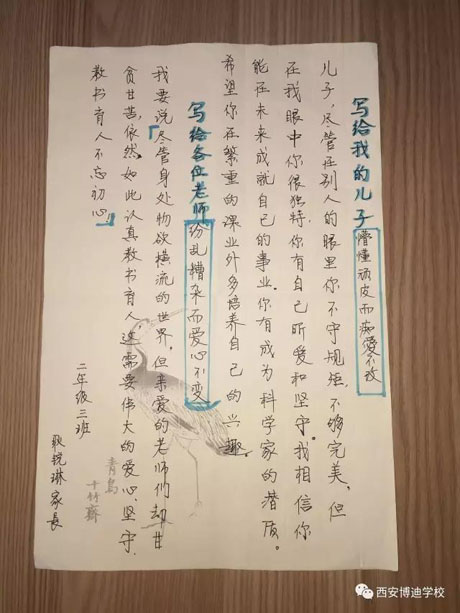 写给我的儿子 懵懂顽皮而痴爱不改
儿子，尽管在别人的眼里你不守规矩，不够完美，但
在我眼中你很独特，你有自己所爱和坚守。我相信你
能在未来成就自己的事业，你有成为科学家的潜质。
希望你在繁重的课业外多培养自己的兴趣。
写给各位老师 纷乱糟杂而爱心不变
我要说『尽管身处物欲横流的世界，但亲爱的老师们却甘
贪甘苦，依然如此认真教书育人，这需要伟大的爱心、坚守
教书育人不忘初心』
二年级三班
锐琳家长
青鸟
十竹斋
西安博迪学校